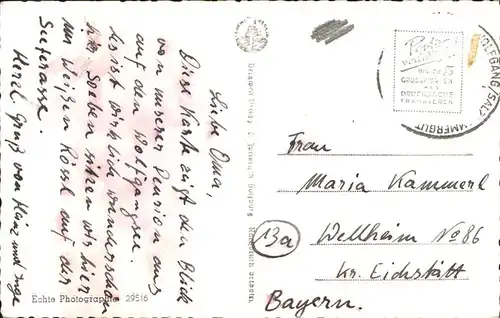 Liebe Oma,
Diese Karte zeigt den Blick
von unserer Pension aus
auf den Wolfgangsee.
Es ist wirklich wunderschön
hier. Soeben sitzen wir hier
im Weißen Rössl auf der
Seeterasse.
Herzl. Gruß von Heinz und Inge
Echte Photographie 29516
WOLFGANG (SALZ
MMERGUT
GRUSSPOSTEN
DRUCKSACHE
FRANKIEREN
Frau
Maria Kammerl
13a
Wellheim No 86
Kr. Eichstätt
Bayern.